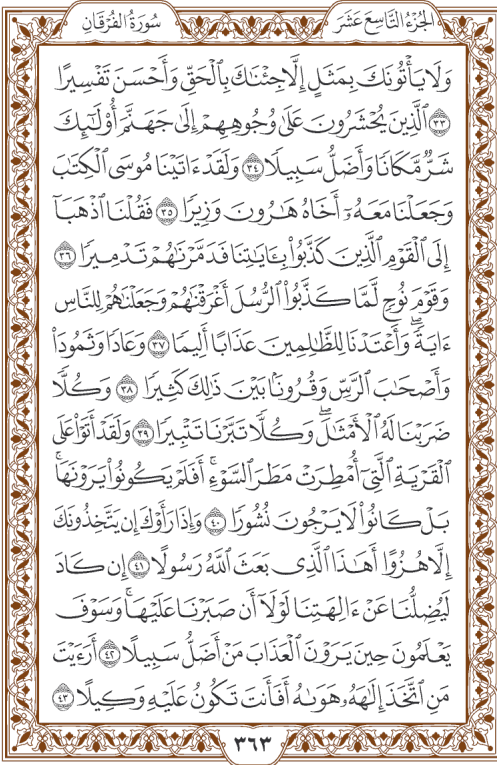 الجزء التاسع عشر
سورة الفرقان
وَلَا يَأْتُونَكَ بِمَثَلٍ إِلَّا جِئْنَٰكَ بِٱلْحَقِّ وَأَحْسَنَ تَفْسِيرًا
٣٣ ٱلَّذِينَ يُحْشَرُونَ عَلَىٰ وُجُوهِهِمْ إِلَىٰ جَهَنَّمَ أُو۟لَٰٓئِكَ
شَرٌّ مَّكَانًا وَأَضَلُّ سَبِيلًا ٣٤ وَلَقَدْ ءَاتَيْنَا مُوسَى ٱلْكِتَٰبَ
وَجَعَلْنَا مَعَهُۥٓ أَخَاهُ هَٰرُونَ وَزِيرًا ٣٥ فَقُلْنَا ٱذْهَبَآ
إِلَى ٱلْقَوْمِ ٱلَّذِينَ كَذَّبُوا۟ بِـَٔايَٰتِنَا فَدَمَّرْنَٰهُمْ تَدْمِيرًا ٣٦
وَقَوْمَ نُوحٍ لَّمَّا كَذَّبُوا۟ ٱلرُّسُلَ أَغْرَقْنَٰهُمْ وَجَعَلْنَٰهُمْ لِلنَّاسِ
ءَايَةً ۖ وَأَعْتَدْنَا لِلظَّٰلِمِينَ عَذَابًا أَلِيمًا ٣٧ وَعَادًا وَثَمُودَا۟
وَأَصْحَٰبَ ٱلرَّسِّ وَقُرُونًۢا بَيْنَ ذَٰلِكَ كَثِيرًا ٣٨ وَكُلًّا
ضَرَبْنَا لَهُ ٱلْأَمْثَٰلَ ۖ وَكُلًّا تَبَّرْنَا تَتْبِيرًا ٣٩ وَلَقَدْ أَتَوْا۟ عَلَى
ٱلْقَرْيَةِ ٱلَّتِىٓ أُمْطِرَتْ مَطَرَ ٱلسَّوْءِ ۚ أَفَلَمْ يَكُونُوا۟ يَرَوْنَهَا ۚ
بَلْ كَانُوا۟ لَا يَرْجُونَ نُشُورًا ٤٠ وَإِذَا رَأَوْكَ إِن يَتَّخِذُونَكَ
إِلَّا هُزُوًا أَهَٰذَا ٱلَّذِى بَعَثَ ٱللَّهُ رَسُولًا ٤١ إِن كَادَ
لَيُضِلُّنَا عَنْ ءَالِهَتِنَا لَوْلَآ أَن صَبَرْنَا عَلَيْهَا ۚ وَسَوْفَ
يَعْلَمُونَ حِينَ يَرَوْنَ ٱلْعَذَابَ مَنْ أَضَلُّ سَبِيلًا ٤٢ أَرَءَيْتَ
مَنِ ٱتَّخَذَ إِلَٰهَهُۥ هَوَىٰهُ أَفَأَنتَ تَكُونُ عَلَيْهِ وَكِيلًا ٤٣
٣٦٣